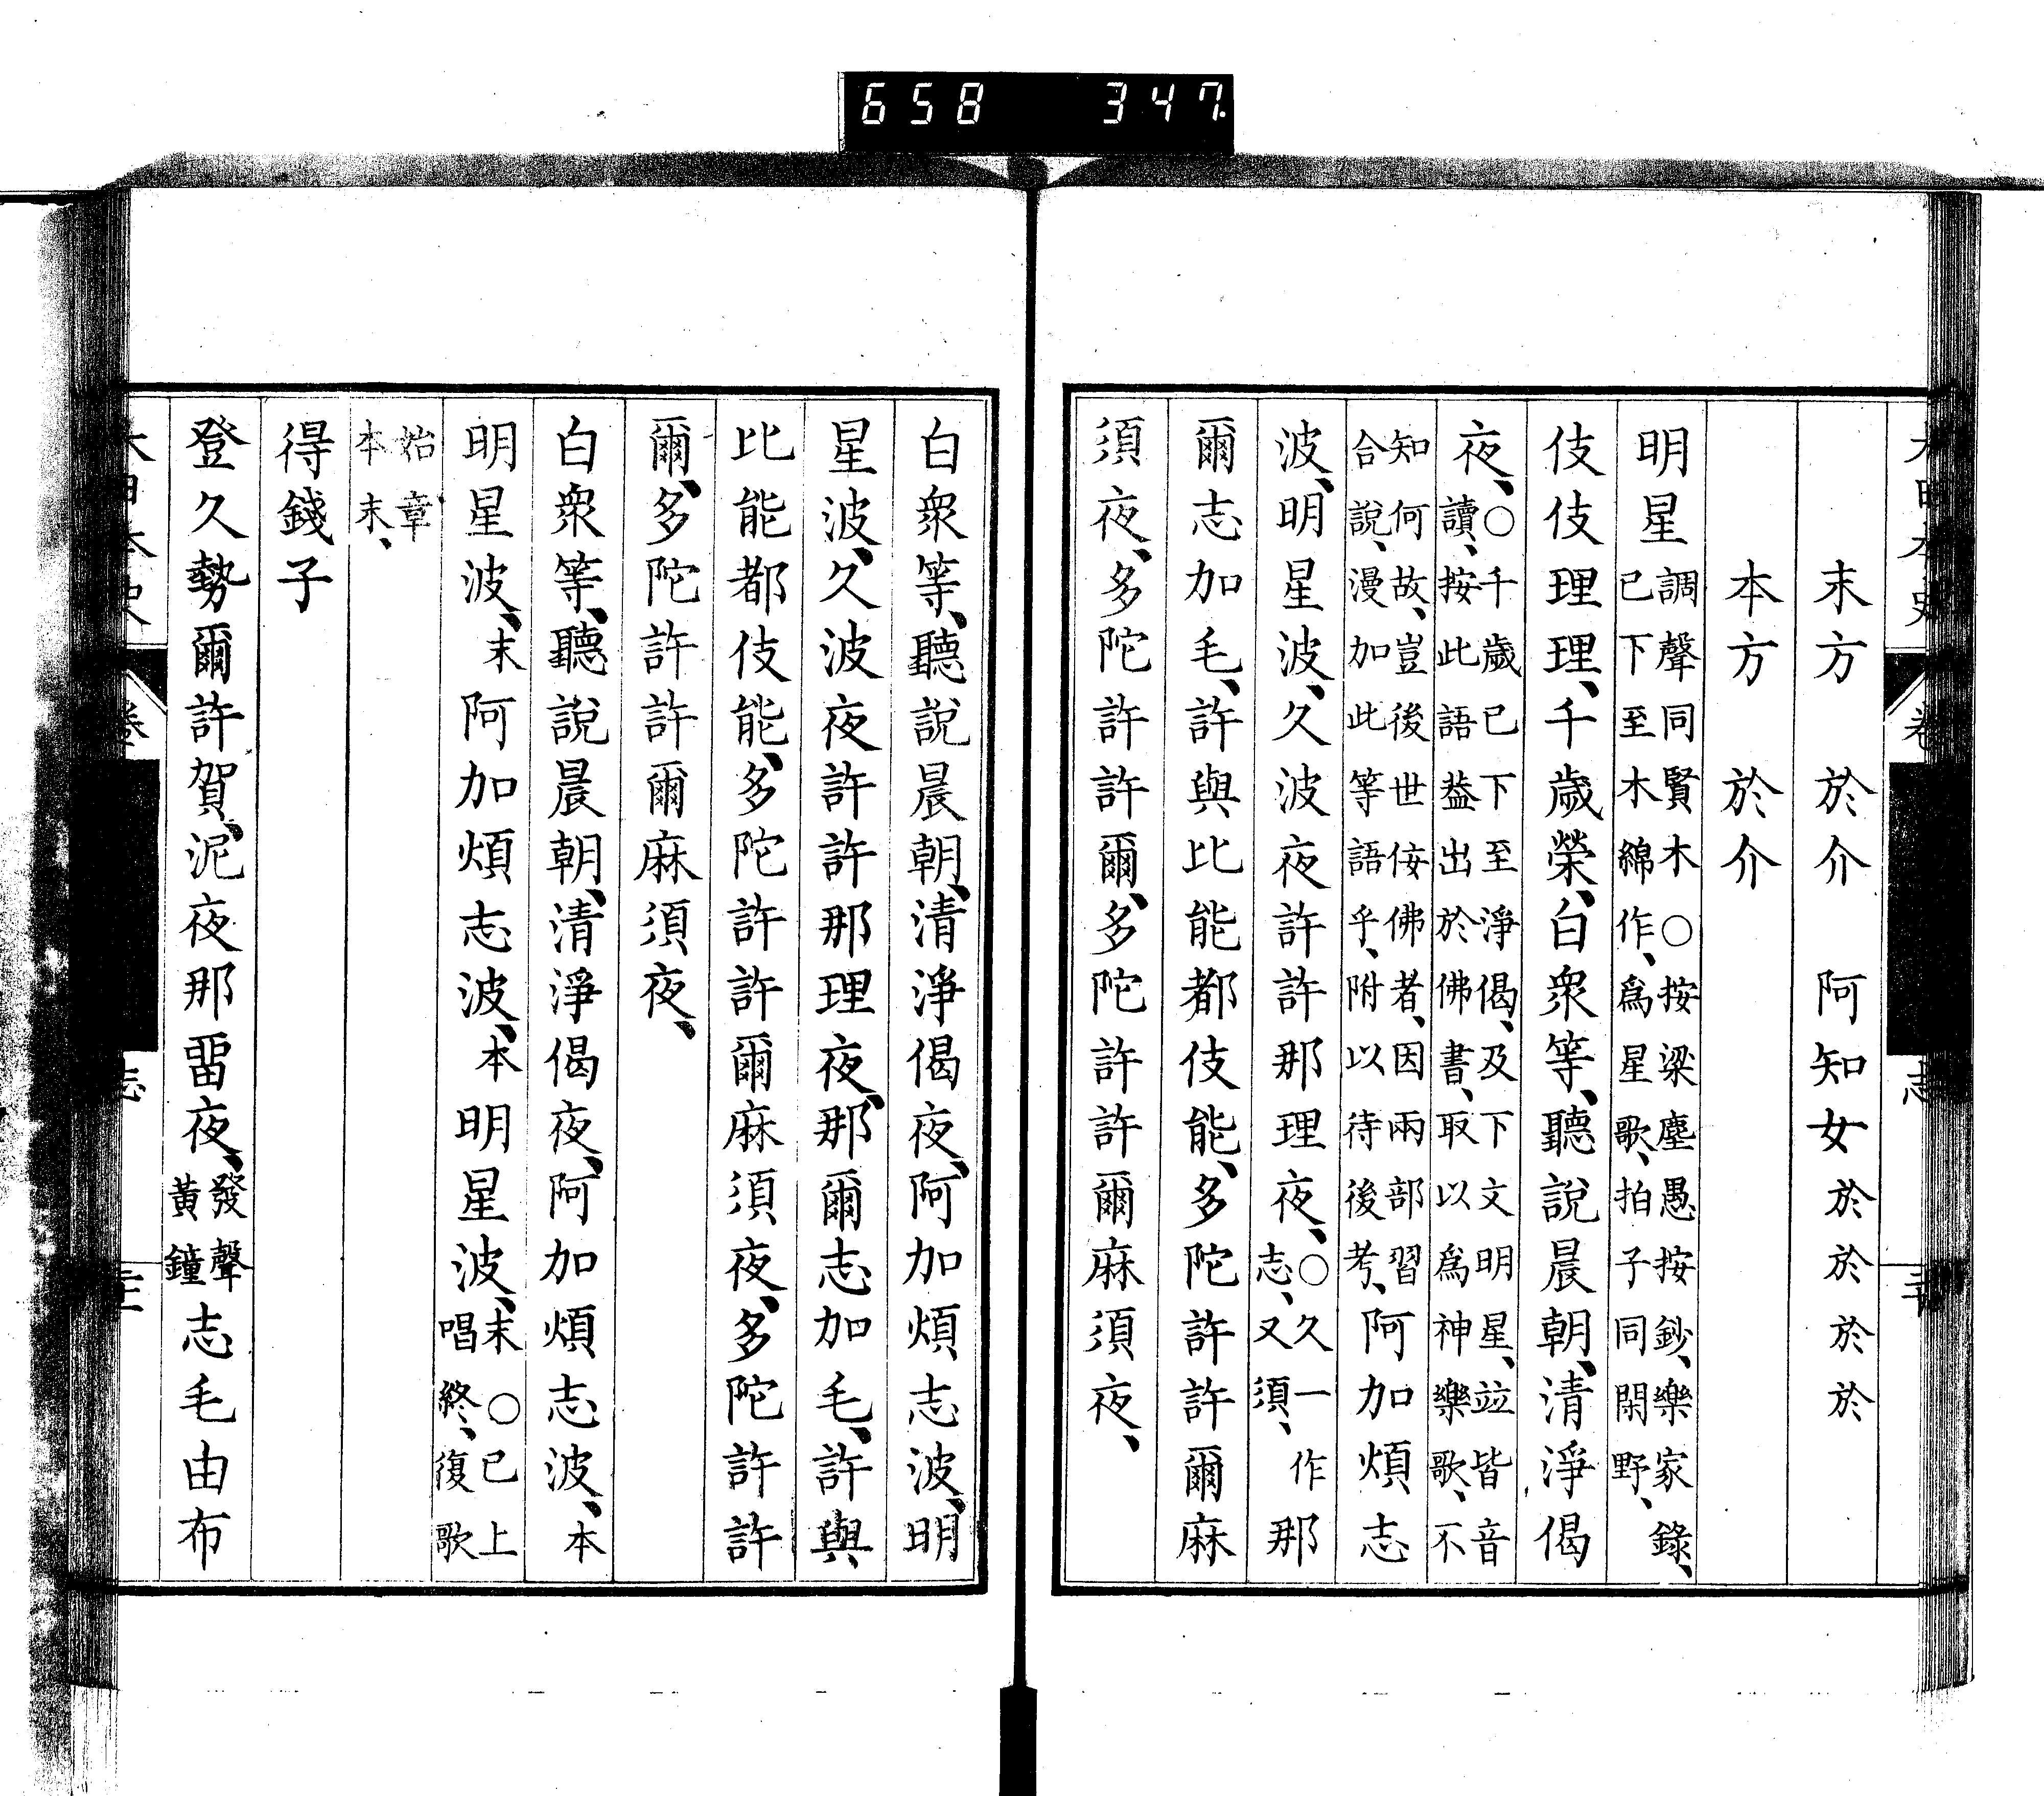 658 347
末方 於介 阿知女於於於於
本方 於介
明星 調聲同賢木○按梁塵愚按鈔、樂家錄、
已下至木綿作、爲星歌、拍子同閑野、
伎伎理理、千歲榮、白衆等、聽說晨朝、清淨偈
夜、○千歲已下至淨偈、及下文明星、竝皆音
讀、按此語葢出於佛書、取以爲神樂歌、不
知何故、豈後世佞佛者、因兩部習
合說、漫加此等語乎、附以待後考、阿加煩志
波、明星波、久波夜許許那理夜、○久一作
志、又須、那
爾志加毛、許與比能都伎能、多陀許許爾麻
須夜、多陀許許爾、多陀許許爾麻須夜、
白衆等、聽說晨朝、清淨偈夜、阿加煩志波、明
星波、久波夜許許那理夜、那爾志加毛、許與
比能都伎能、多陀許許爾麻須夜、多陀許許
爾、多陀許許爾麻須夜、
白衆等、聽說晨朝、清淨偈夜、阿加煩志波、本
明星波、末阿加煩志波、本明星波、末○已上
唱終、復歌
始章
本末、
得錢子
登久勢爾許賀、泥夜那畱夜、發聲
黃鐘志毛由布